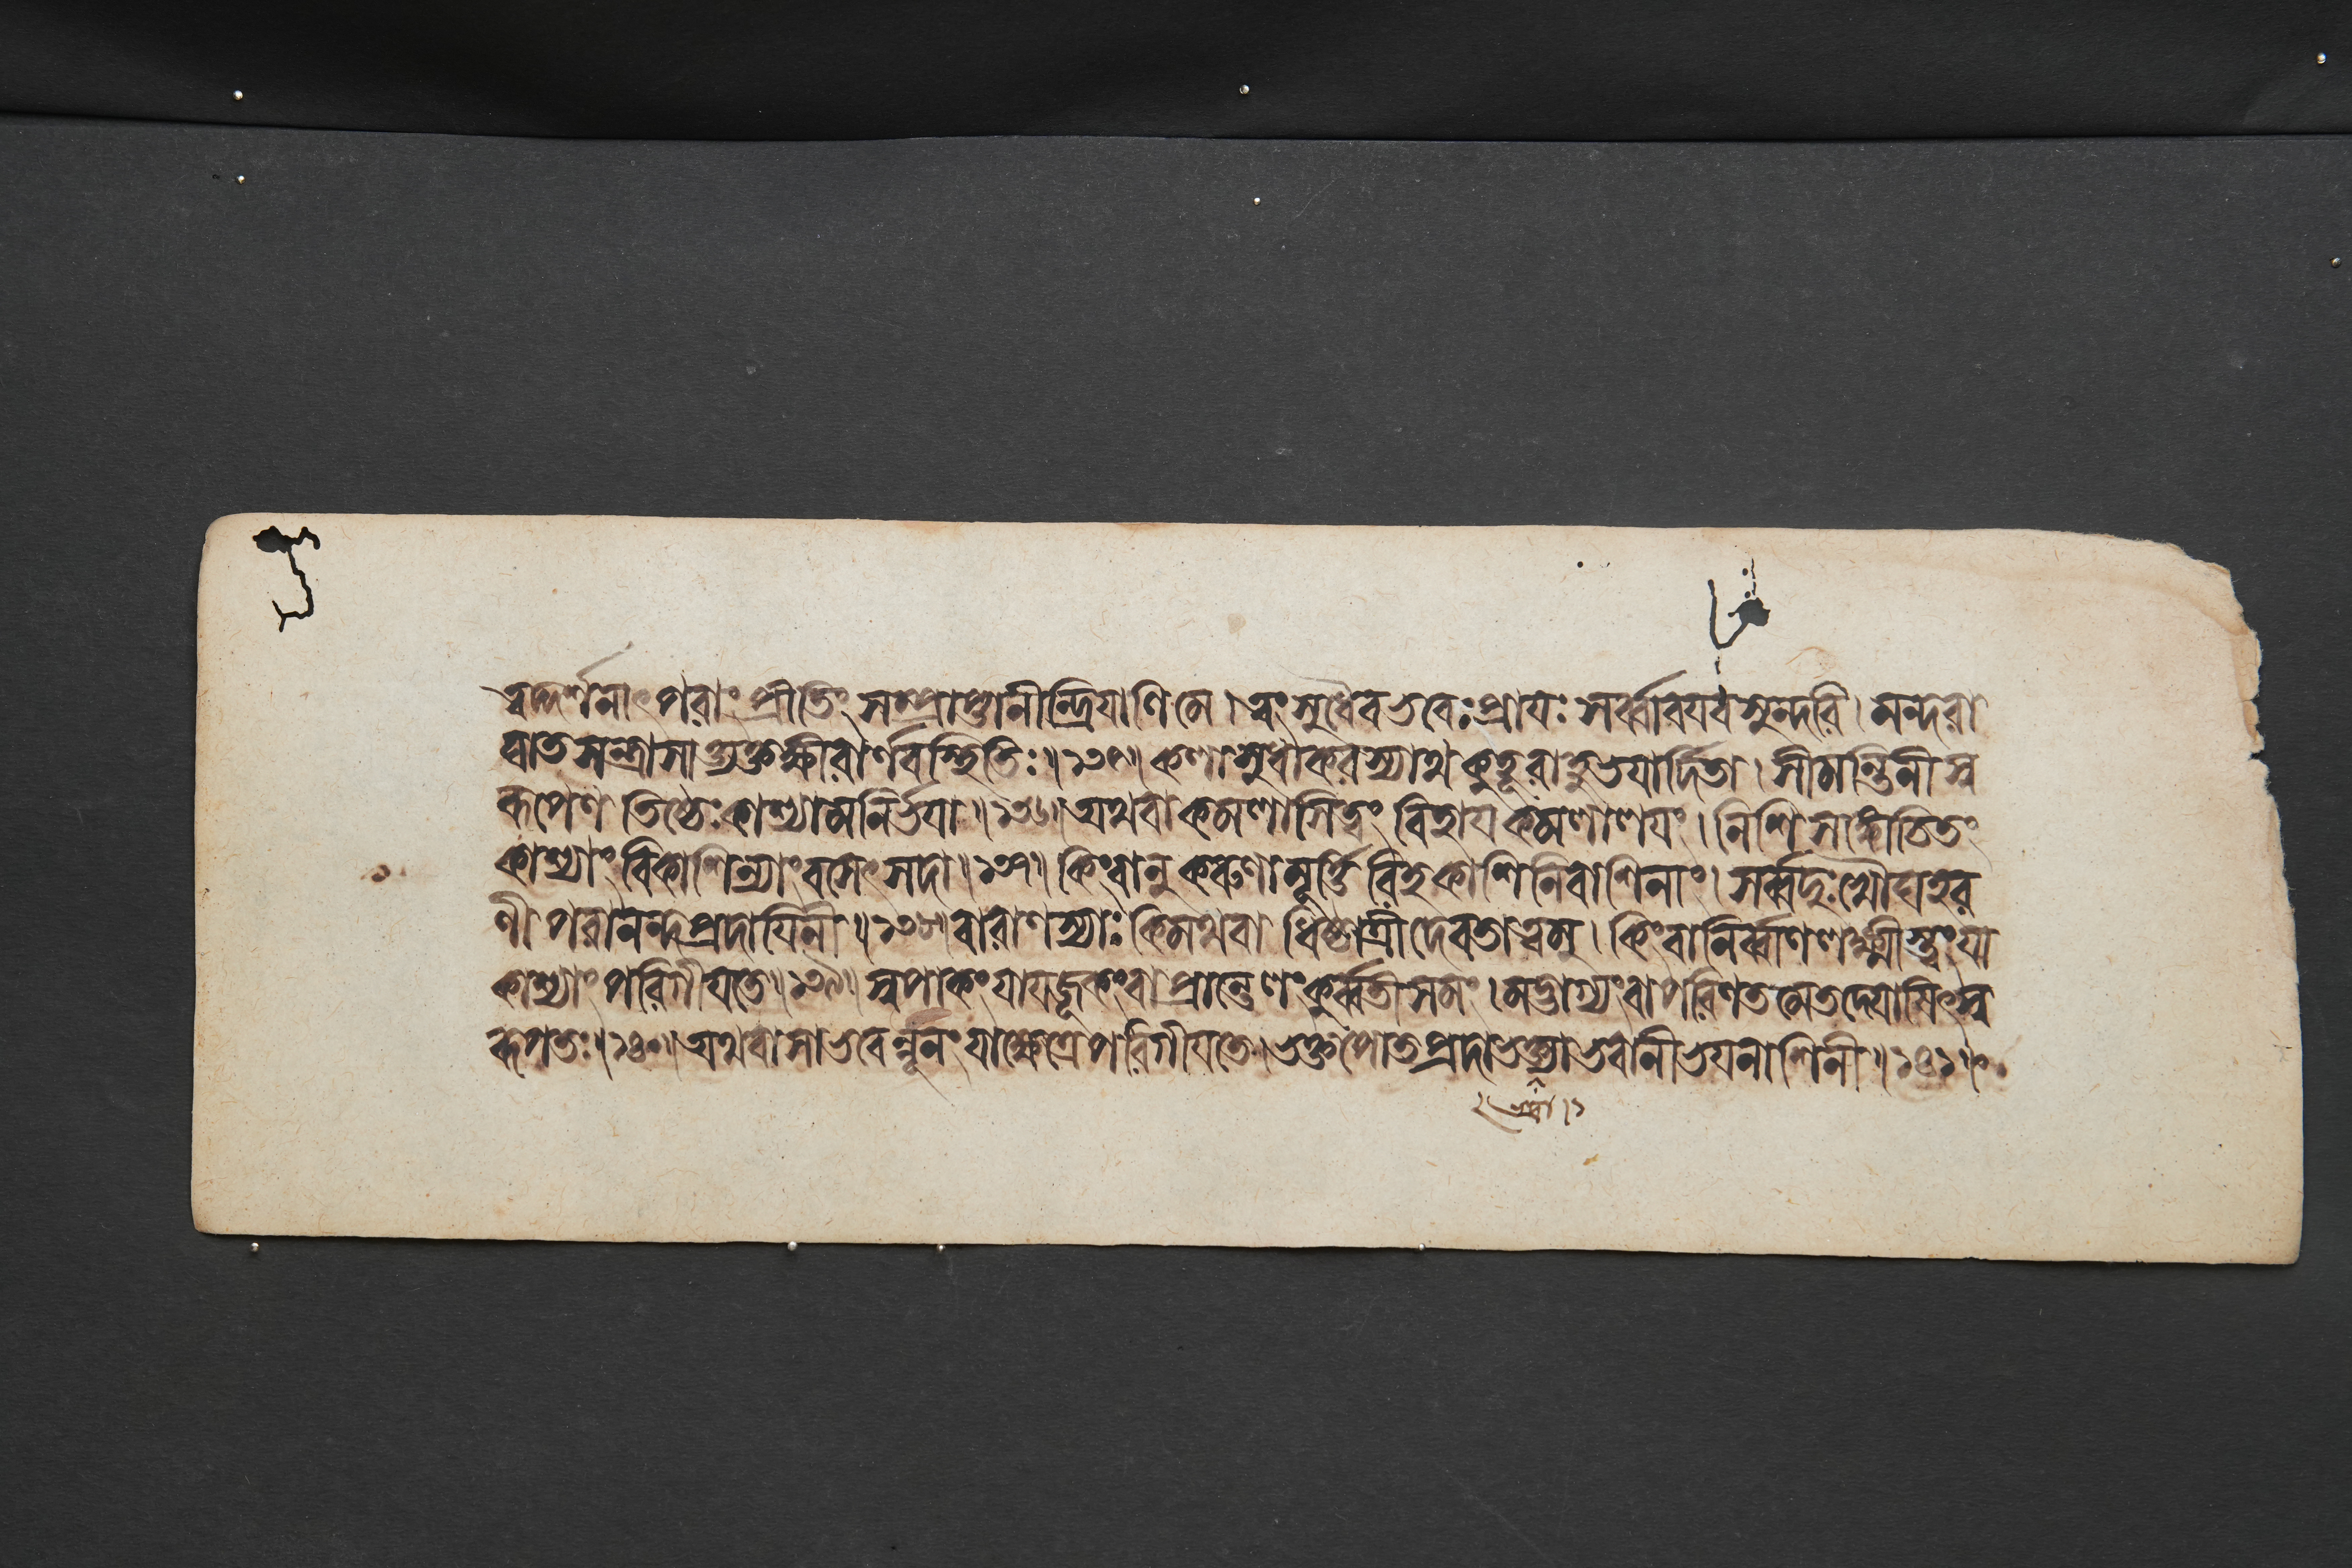 ত্বদ্দর্শনাৎ পরাং প্রীতিং সম্প্রাপ্তানীন্দ্রিযাণি মে। ত্বং সুধৈব ভবেঃ প্রাযঃ সর্ব্বাবযবসুন্দরি। মন্দরা
ঘাতসন্ত্রাসাত্ত্যক্তক্ষীরার্ণবস্থিতিঃ॥১৩৫॥ কলাসুধাকরস্যাথ কুহূরাহুভযার্দিতা। সীমন্তিনীস্ব
রূপেণ তিষ্ঠেঃ কাশ্যামনির্ভযা॥১৩৬॥ অথবা কমলাসি ত্বং বিহায কমলালযং। নিশি সঙ্কোচিতং
কাশ্যাং বিকাশিন্যাং বসেৎ সদা॥১৩৭॥ কিং বানু করুণামূর্ত্তিরিহ কাশিনিবাশিনাং। সর্ব্বদুঃখৌঘহর
ণী পরানন্দপ্রদাযিনী॥১৩৮॥ বারাণস্যাঃ কিমথবা ধিষ্ঠাত্রী দেবতা ত্বমু। কিং বা নির্ব্বাণলক্ষ্মীস্ত্বং যা
কাশ্যাং পরিগীযতে॥১৩৯॥ স্বপাকং যাযজূকং বা প্রান্তেলংকুর্ব্বতী সমং। মদ্ভাগ্যং বা পরিণতমেতদ্যোষিৎস্ব
রূপতঃ॥১৪০॥ অথবা সা ভবেন্নূনং যা ক্ষেত্রে পরিগীযতে। ভক্তপোতপ্রদা ভক্ত্যা ভবানী ভযনাশিনী॥১৪১॥